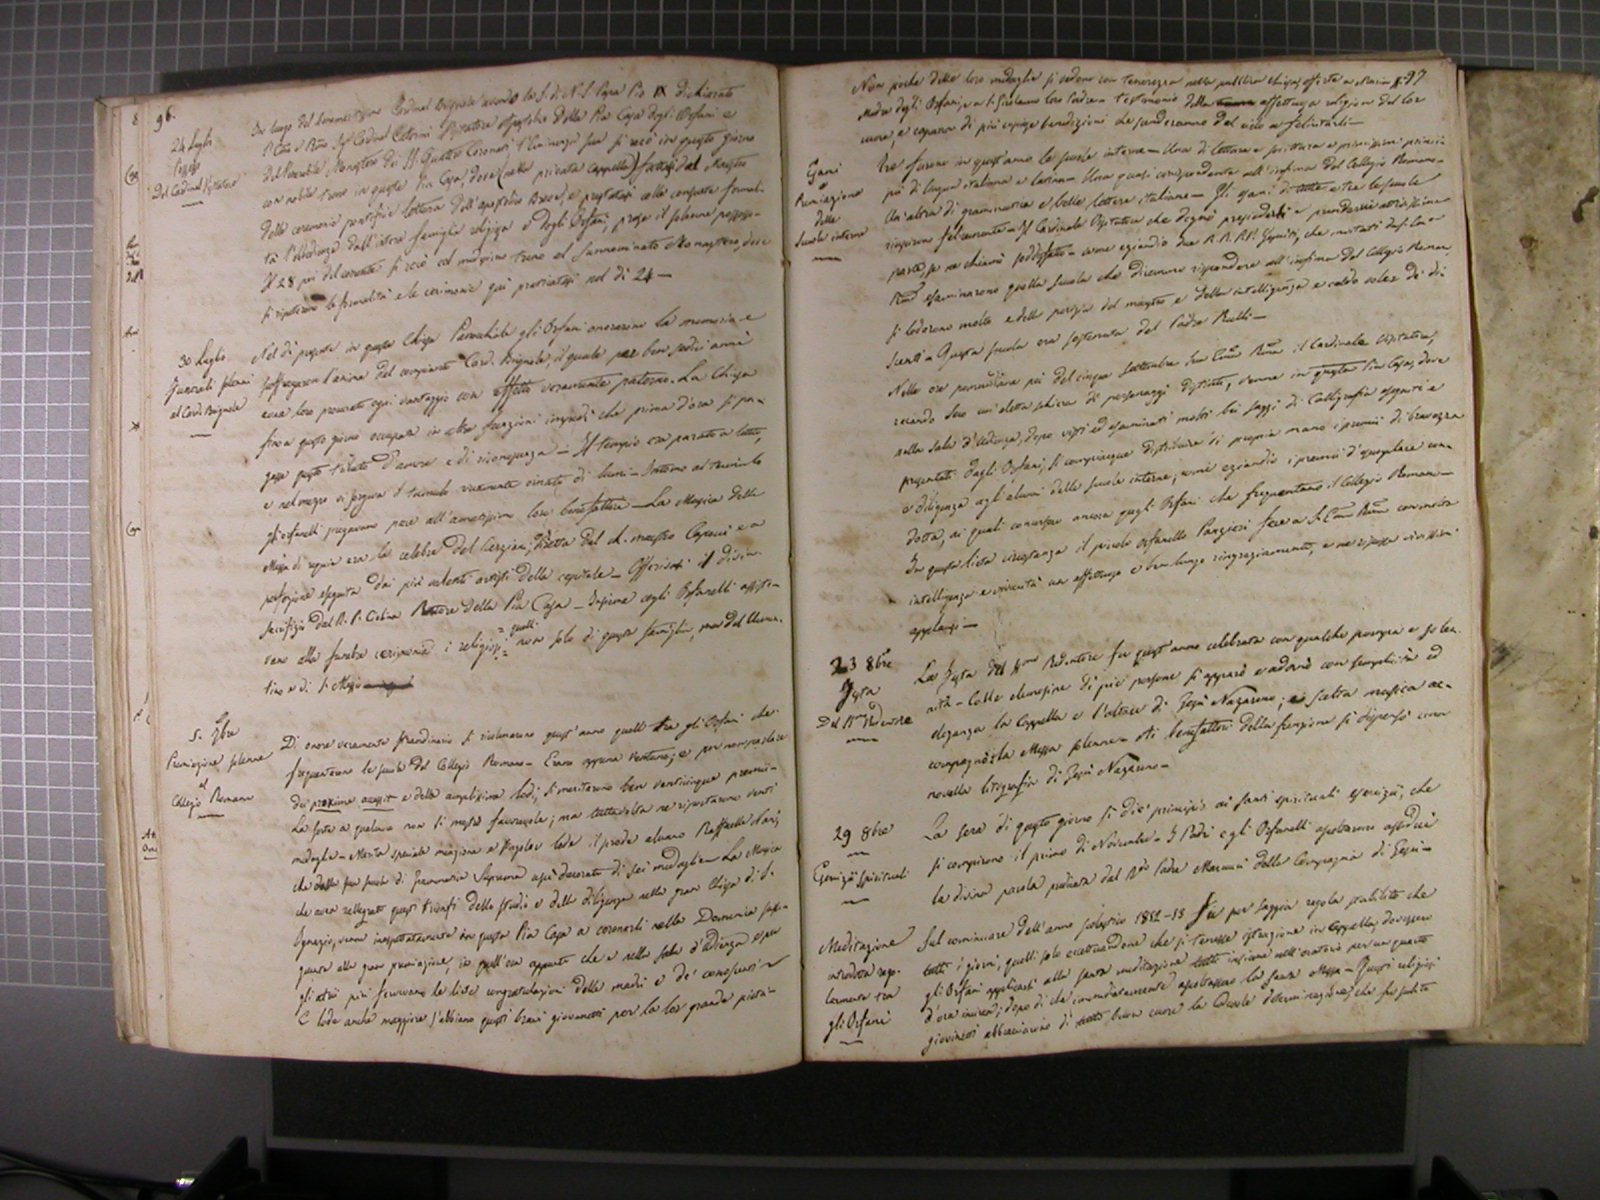 96.
24 Luglio
Possesso
Del Cardinal Visitatore
In luogo del benemeritissimo Cardinal Brignole avendo la S. di N. S. Papa Pio IX dichiarato
l'Emo e Rmo Sigr Cardinal Caterini Visitatore Apostolico della Pia Casa degli Orfani e
del Venerabile Monastero dei SS. Quattro Coronati l'Eminenza sua si recò in questo giorno
con nobile treno in questa Pia Casa, dove (nella privata cappella) fattasi dal Maestro
delle ceremonie pontificie lettura dell'apostolico Breve, e prestatasi colle consuete formali-
tà l'obbedienza dall'intera famiglia religiosa e degli Orfani, prese il solenne possesso-
Il 28 poi del corrente si recò col medesimo treno al sunnominato Monastero, dove
si ripeterono le formalità e le cerimonie qui praticatesi nel dì 24 —
30 Luglio
Funerali solenni
al Card. Brignole
Nel dì presente in questa Chiesa Parrochiale gli Orfani onorarono la memoria e
suffragarono l'anima del compianto Card. Brignole, il quale per ben sedici anni
avea loro procurato ogni vantaggio con affetto veramente paterno. La Chiesa
fino a questo giorno occupata in altre funzioni impedì che prima d'ora si pa-
gasse questo tributo d'amore e di riconoscenza — Il tempio era parato a lutto,
e nel mezzo vi sorgeva il tumulo vagamente ornato di lumi — Intorno al tumulo
gli orfanelli pregavano pace all'amatissimo loro benefattore — La Musica della
Messa di requie era la celebre del Terziani, diretta dal ch. maestro Capocci e a
perfezione eseguita dai più valenti artisti della capitale — Offerivasi il divin
sacrifizio dal R. P. Rettore della Pia Casa — Insieme cogli Orfanelli assiste-
vano alla funebre cerimonia i religiosi quelli non solo di questa famiglia, ma del Clemen-
tino e di S. Alessio
5. 7bre
Premiazione solenne
al
Collegio Romano
Di onore veramente straordinario si ricolmarono quest'anno quelli tra gli Orfani che
frequentarono le scuole del Collegio Romano — Erano appena ventuno; e per non parlare
dei proxime accessit e delle amplissime lodi, si meritarono ben venticinque premii —
La sorte a qualcuno non si mostrò favorevole; ma tuttavolta ne riportarono venti
medaglie — Merita speciale menzione e singolar lode il prode alunno Raffaelle Nari,
che dalla sua scuola di Grammatica Suprema uscì decorato di sei medaglie — La Musica
che avea rallegrato questi trionfi dello studio e della diligenza nella gran Chiesa di S.
Ignazio, venne inaspettatamente in questa Pia Casa a coronarli nella Domenica susse-
guente alla gran premiazione, in quell'ora appunto che e nella sala d'udienza e per
gli atrii più fervevano le liete congratulazioni delle madri e de' conoscenti —
E lode anche maggiore s'abbiano questi bravi giovanetti per la lor grande pietà —
97
Non poche delle loro medaglie si vedono con tenerezza nella pubblica chiesa offerte a Maria SS.
Madre degli Orfani, e a S. Girolamo loro Padre — Testimonio della affettuosa religion del lor
cuore, e caparra di più copiose benedizioni che scenderanno dal cielo a felicitarli —
Esami
e
Premiazione
delle
Scuole interne
Tre furono in quest'anno le scuole interne — Una di lettura e scrittura e principiis
pii di lingua italiana e latina — Una quasi corrispondente all'infima del Collegio Romano —
Un'altra di grammatica e belle lettere italiane — Gli esami di tutte e tre le scuole
riuscirono felicemente — Il Cardinale Visitatore che degnò presiederli e prendervi attivissima
parte, se ne chiamò soddisfatto — come eziandio due R.R. P.P. Gesuiti, che invitati dal
esaminarono quella scuola che dicemmo rispondere all'infima del Collegio Roman,
si lodarono molto e della perizia del maestro e della intelligenza e
Questa scuola era sostenuta dal Padre
Nelle ore pomeridiane poi del cinque Settembre Sua Emza Rma il Cardinale Visitatore,
recando seco un'eletta schiera di personaggi distinti, venne in questa Pia Casa, dove
nella sala d'udienza, dopo visti ed esaminati molti bei saggi di Calligrafia eseguiti e
presentati dagli Orfani, si compiacque distribuire di propria mano i premii di bravezza
e diligenza agli alunni delle scuole interne, come eziandio i premii d'esemplare con-
dotta, ai quali concorsero ancora quegli Orfani che frequentano il Collegio Romano —
In questa lieta circostanza il piccolo orfanello fece a S. Emza Rma con molta
intelligenza e vivacità un affettuoso e ben lungo ringraziamento, e ne riscosse vivissimi
applausi —
23 8bre
Festa
Del SS.mo Redentore
La festa del SSmo Redentore fu quest'anno celebrata con qualche pompa e solen
nità — Colle elemosine di pie persone si apparò e adornò con semplicità ed
eleganza la Cappella e l'altare di Gesù Nazareno; e scelta musica ac-
compagnò la Messa solenne — Ai benefattori della funzione si dispensò una
novella litografia di Gesù Nazareno —
29 8bre
Esercizi spirituali
La sera di questo giorno si diè principio ai santi spirituali esercizii, che
si compirono il primo di Novembre — I Padri e gli Orfanelli ascoltarono assidui
la divina parola predicata dal Rdo Padre della Compagnia di Gesù —
Meditazione
introdotta rego-
larmente tra
gli Orfani
Sul cominciare dell'anno scolastico 1852-53 fu per saggia regola stabilito che
tutti i giorni, quelli solo eccettuandone che si tenesse istruzione in Cappella, dovessero
gli Orfani applicarsi alla santa meditazione tutti insieme nell'oratorio per un quarto
d'ora intiero; dopo di che immediatamente ascoltassero la santa Messa — Questi religiosi
giovinetti abbracciarono di tutto buon cuore la lodevole determinazione, che fu subito